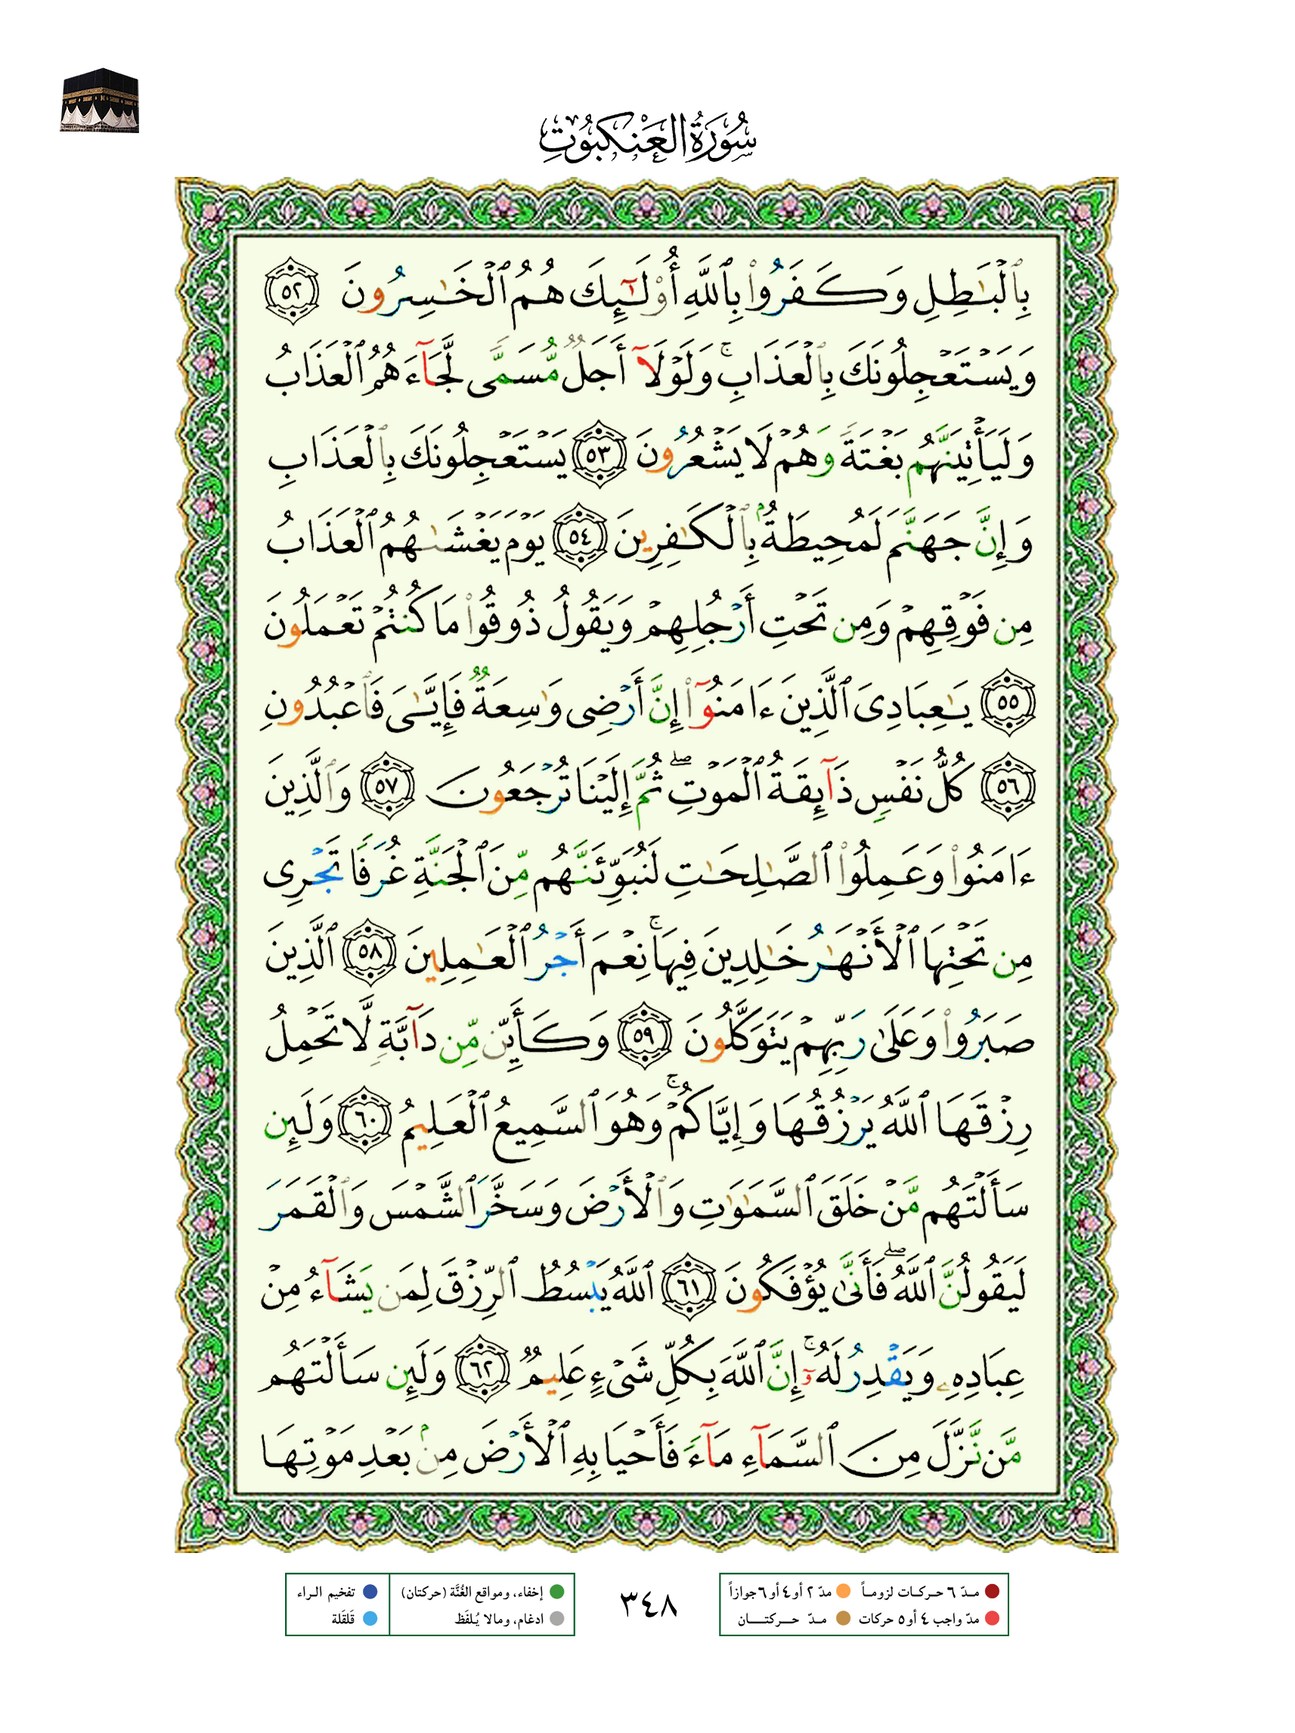 سُورَةُ الْعَنْكَبُوتِ
بِٱلْبَٰطِلِ وَكَفَرُوا۟ بِٱللَّهِ أُو۟لَٰٓئِكَ هُمُ ٱلْخَٰسِرُونَ ٥٢
وَيَسْتَعْجِلُونَكَ بِٱلْعَذَابِ ۚ وَلَوْلَآ أَجَلٌ مُّسَمًّى لَّجَآءَهُمُ ٱلْعَذَابُ
وَلَيَأْتِيَنَّهُم بَغْتَةً وَهُمْ لَا يَشْعُرُونَ ٥٣ يَسْتَعْجِلُونَكَ بِٱلْعَذَابِ
وَإِنَّ جَهَنَّمَ لَمُحِيطَةٌۢ بِٱلْكَٰفِرِينَ ٥٤ يَوْمَ يَغْشَىٰهُمُ ٱلْعَذَابُ
مِن فَوْقِهِمْ وَمِن تَحْتِ أَرْجُلِهِمْ وَيَقُولُ ذُوقُوا۟ مَا كُنتُمْ تَعْمَلُونَ
٥٥ يَٰعِبَادِىَ ٱلَّذِينَ ءَامَنُوٓا۟ إِنَّ أَرْضِى وَٰسِعَةٌ فَإِيَّٰىَ فَٱعْبُدُونِ
٥٦ كُلُّ نَفْسٍ ذَآئِقَةُ ٱلْمَوْتِ ۖ ثُمَّ إِلَيْنَا تُرْجَعُونَ ٥٧ وَٱلَّذِينَ
ءَامَنُوا۟ وَعَمِلُوا۟ ٱلصَّٰلِحَٰتِ لَنُبَوِّئَنَّهُم مِّنَ ٱلْجَنَّةِ غُرَفًا تَجْرِى
مِن تَحْتِهَا ٱلْأَنْهَٰرُ خَٰلِدِينَ فِيهَا ۚ نِعْمَ أَجْرُ ٱلْعَٰمِلِينَ ٥٨ ٱلَّذِينَ
صَبَرُوا۟ وَعَلَىٰ رَبِّهِمْ يَتَوَكَّلُونَ ٥٩ وَكَأَيِّن مِّن دَآبَّةٍ لَّا تَحْمِلُ
رِزْقَهَا ٱللَّهُ يَرْزُقُهَا وَإِيَّاكُمْ ۚ وَهُوَ ٱلسَّمِيعُ ٱلْعَلِيمُ ٦٠ وَلَئِن
سَأَلْتَهُم مَّنْ خَلَقَ ٱلسَّمَٰوَٰتِ وَٱلْأَرْضَ وَسَخَّرَ ٱلشَّمْسَ وَٱلْقَمَرَ
لَيَقُولُنَّ ٱللَّهُ ۖ فَأَنَّىٰ يُؤْفَكُونَ ٦١ ٱللَّهُ يَبْسُطُ ٱلرِّزْقَ لِمَن يَشَآءُ مِنْ
عِبَادِهِۦ وَيَقْدِرُ لَهُۥٓ ۚ إِنَّ ٱللَّهَ بِكُلِّ شَىْءٍ عَلِيمٌ ٦٢ وَلَئِن سَأَلْتَهُم
مَّن نَّزَّلَ مِنَ ٱلسَّمَآءِ مَآءً فَأَحْيَا بِهِ ٱلْأَرْضَ مِنۢ بَعْدِ مَوْتِهَا
مدّ ٦ حركات لزوماً مدّ ٢ أو ٤ أو ٦ جوازاً
مدّ واجب ٤ أو ٥ حركات مدّ حركتان
٣٤٨
إخفاء، ومواقع الغُنَّة (حركتان) تفخيم الراء
ادغام، ومالا يُلفَظ قَلقَلة